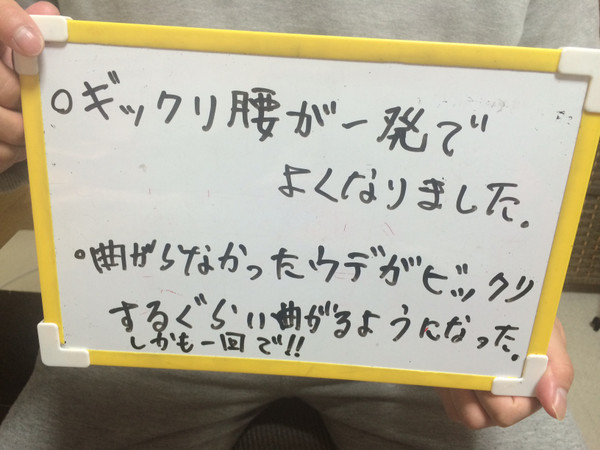 ○ギックリ腰が一発で
よくなりました。
○曲がらなかったウデがビックリ
するぐらい曲がるようになった。
しかも一回で!!